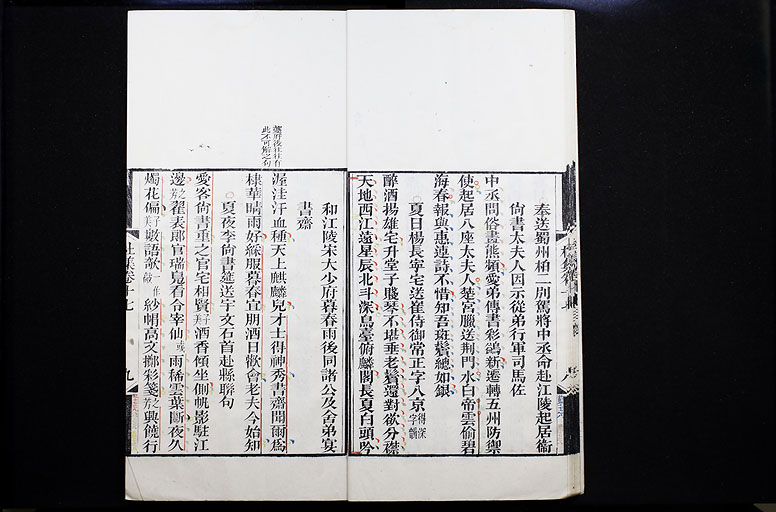 奉送蜀州柏二別駕將中丞命赴江陵起居衞
尚書太夫人因示從弟行軍司馬佐
中丞問俗畫熊頻愛弟傳書彩鷁新遷轉五州防禦
使起居八座太夫人楚宮臘送荆門水白帝雲偷碧
海春報與惠連詩不惜知吾斑鬢總如銀
夏日楊長寧宅送崔侍御常正字入京得深字韻
醉酒揚雄宅升堂子賤琴不堪垂老鬢還對欲分襟
天地西江遠星辰北斗深烏臺俯麟閣長夏白頭吟
和江陵宋大少府暮春雨後同諸公及舍弟宴
書齋
渥洼汗血種天上麒麟兒才士得神秀書齋聞爾爲
棣華晴雨好綵服暮春宜朋酒日歡會老夫今始知
夏夜李尚書筵送宇文石首赴縣聯句
愛客尚書重之官宅相賢子美酒香傾坐側帆影駐江
邊之芳翟表郎官瑞鳧看令宰仙彧雨稀雲葉斷夜久
燭花偏子美數語欹紗帽高文擲彩箋之芳興饒行
杜集卷十七
九